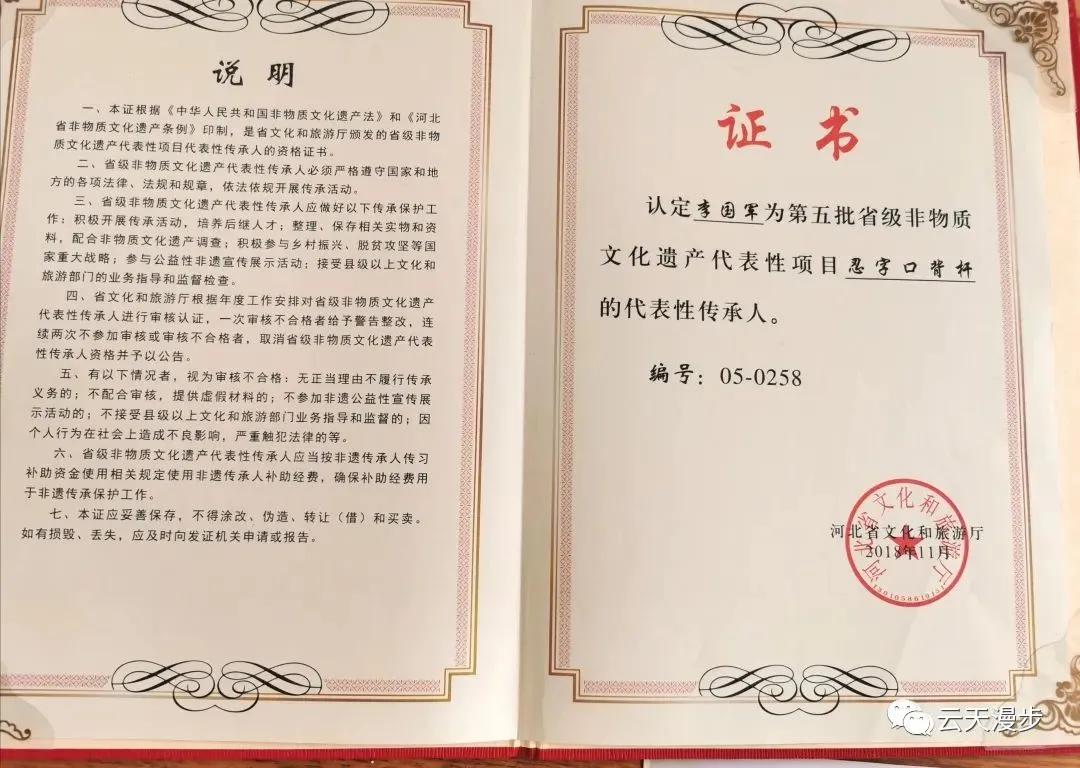 说 明
一、本证根据《中华人民共和国非物质文化遗产法》和《河北
省非物质文化遗产条例》印制，是省文化和旅游厅颁发的省级非物
质文化遗产代表性项目代表性传承人的资格证书。
二、省级非物质文化遗产代表性传承人必须严格遵守国家和地
方的各项法律、法规和规章，依法依规开展传承活动。
三、省级非物质文化遗产代表性传承人应做好以下传承保护工
作：积极开展传承活动，培养后继人才；整理、保存相关实物和资
料，配合非物质文化遗产调查；积极参与乡村振兴、脱贫攻坚等国
家重大战略；参与公益性非遗宣传展示活动；接受县级以上文化和
旅游部门的业务指导和监督检查。
四、省文化和旅游厅根据年度工作安排对省级非物质文化遗产
代表性传承人进行审核认证，一次审核不合格者给予警告整改，连
续两次不参加审核或审核不合格者，取消省级非物质文化遗产代表
性传承人资格并予以公告。
五、有以下情况者，视为审核不合格：无正当理由不履行传承
义务的；不配合审核，提供虚假材料的；不参加非遗公益性宣传展
示活动的；不接受县级以上文化和旅游部门业务指导和监督的；因
个人行为在社会上造成不良影响，严重触犯法律的等。
六、省级非物质文化遗产代表性传承人应当按非遗传承人传习
补助资金使用相关规定使用非遗传承人补助经费，确保补助经费用
于非遗传承保护工作。
七、本证应妥善保存，不得涂改、伪造、转让（借）和买卖。
如有损毁、丢失，应及时向发证机关申请或报告。
证 书
认定李国军为第五批省级非物质
文化遗产代表性项目忍字口背杆
的代表性传承人。
编号：05-0258
河北省文化和旅游厅
2018年11月
河北省文化和旅游厅
云天漫步